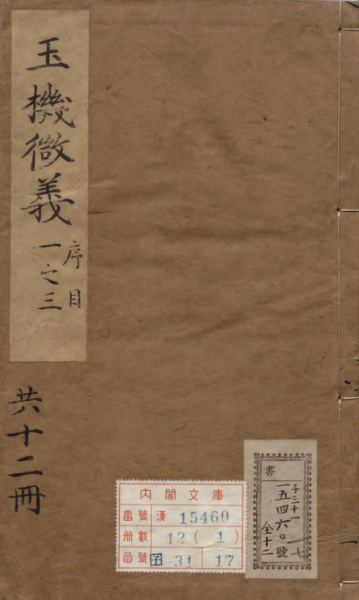 玉機微義 序目 一之三
共十二冊
内閣文庫
番號 漢 15460
冊數 12 (1)
函號 31 17
書
子三十一
一五四六〇號
全十二